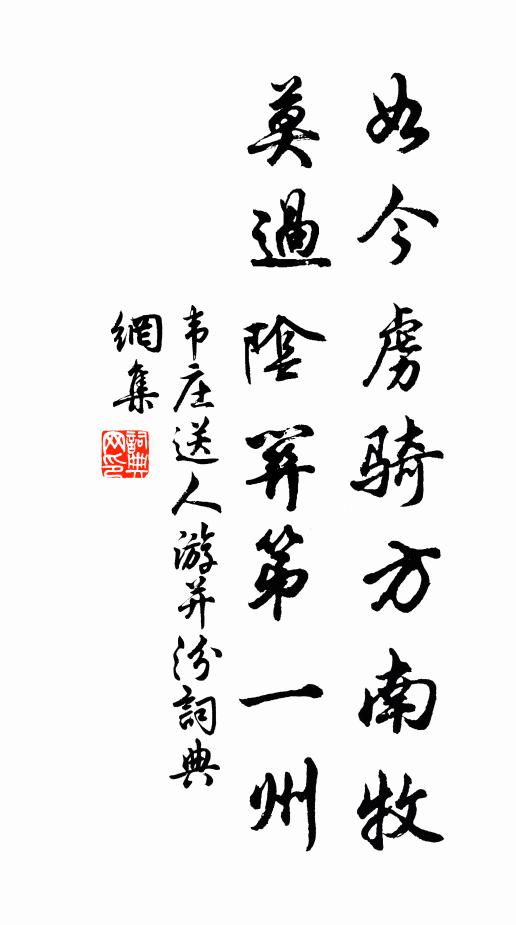 如今虜騎方南牧
莫過陰關第一州
韦庄送人游并汾詞典
網集
詞典网印